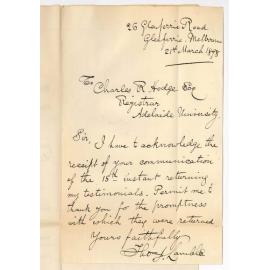 26 Glenferrie Road
Glenferrie, Melbourne
21st March 1898
To
Charles R Hodge Esq
Registrar
Adelaide University
Sir, I have to acknowledge the
receipt of your communication
of the 18th instant returning
my testimonials. Permit me to
thank you for the promptness
with which they were returned
Yours faithfully
Thos J. Lamble